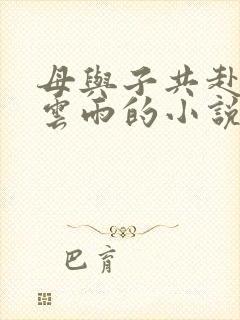 母與子共赴
雲雨的小說
巴育